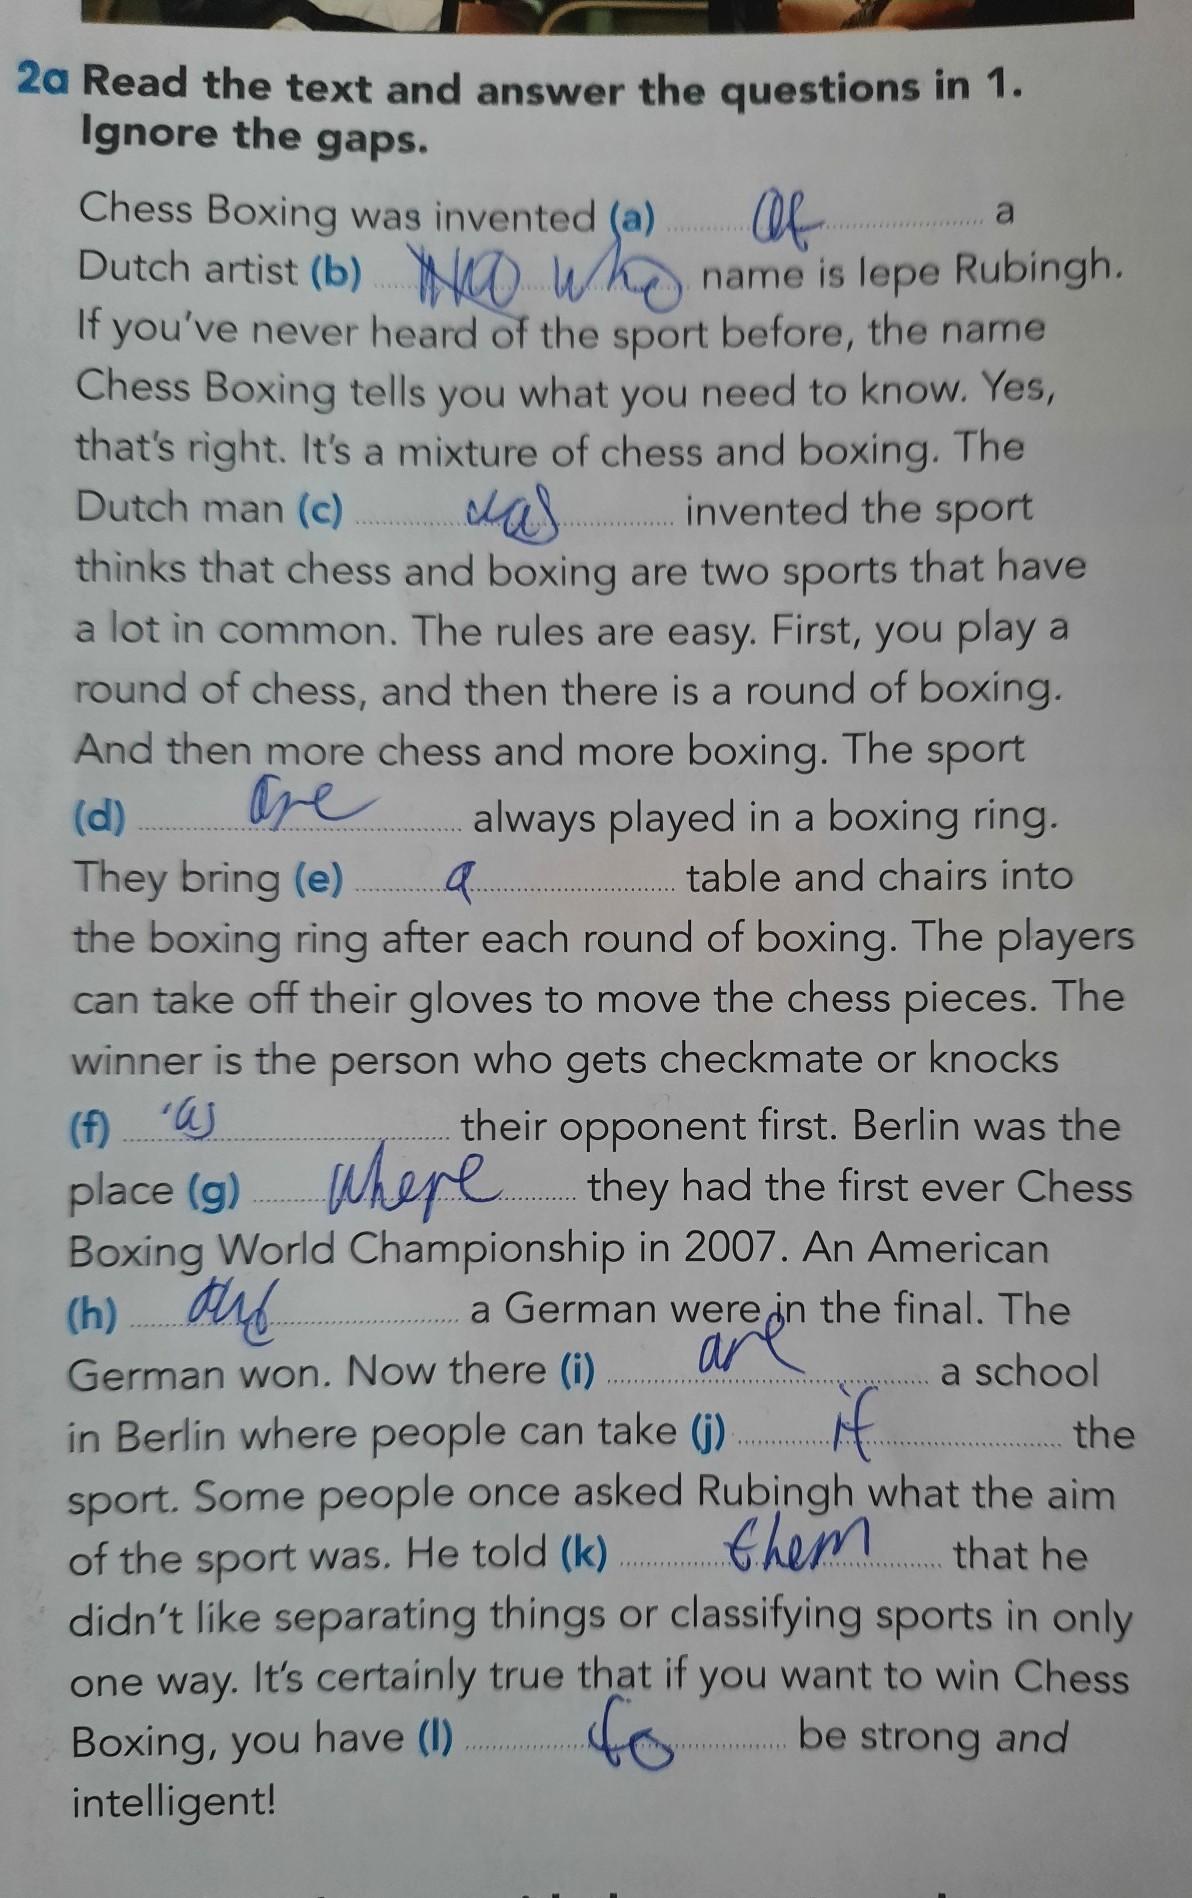 2a Read the text and answer the questions in 1.
Ignore the gaps.
Chess Boxing was invented (a) of a
Dutch artist (b) who name is Iepe Rubingh.
If you've never heard of the sport before, the name
Chess Boxing tells you what you need to know. Yes,
that's right. It's a mixture of chess and boxing. The
Dutch man (c) was invented the sport
thinks that chess and boxing are two sports that have
a lot in common. The rules are easy. First, you play a
round of chess, and then there is a round of boxing.
And then more chess and more boxing. The sport
(d) are always played in a boxing ring.
They bring (e) a table and chairs into
the boxing ring after each round of boxing. The players
can take off their gloves to move the chess pieces. The
winner is the person who gets checkmate or knocks
(f) as their opponent first. Berlin was the
place (g) where they had the first ever Chess
Boxing World Championship in 2007. An American
(h) and a German were in the final. The
German won. Now there (i) are a school
in Berlin where people can take (j) if the
sport. Some people once asked Rubingh what the aim
of the sport was. He told (k) them that he
didn't like separating things or classifying sports in only
one way. It's certainly true that if you want to win Chess
Boxing, you have (l) to be strong and
intelligent!